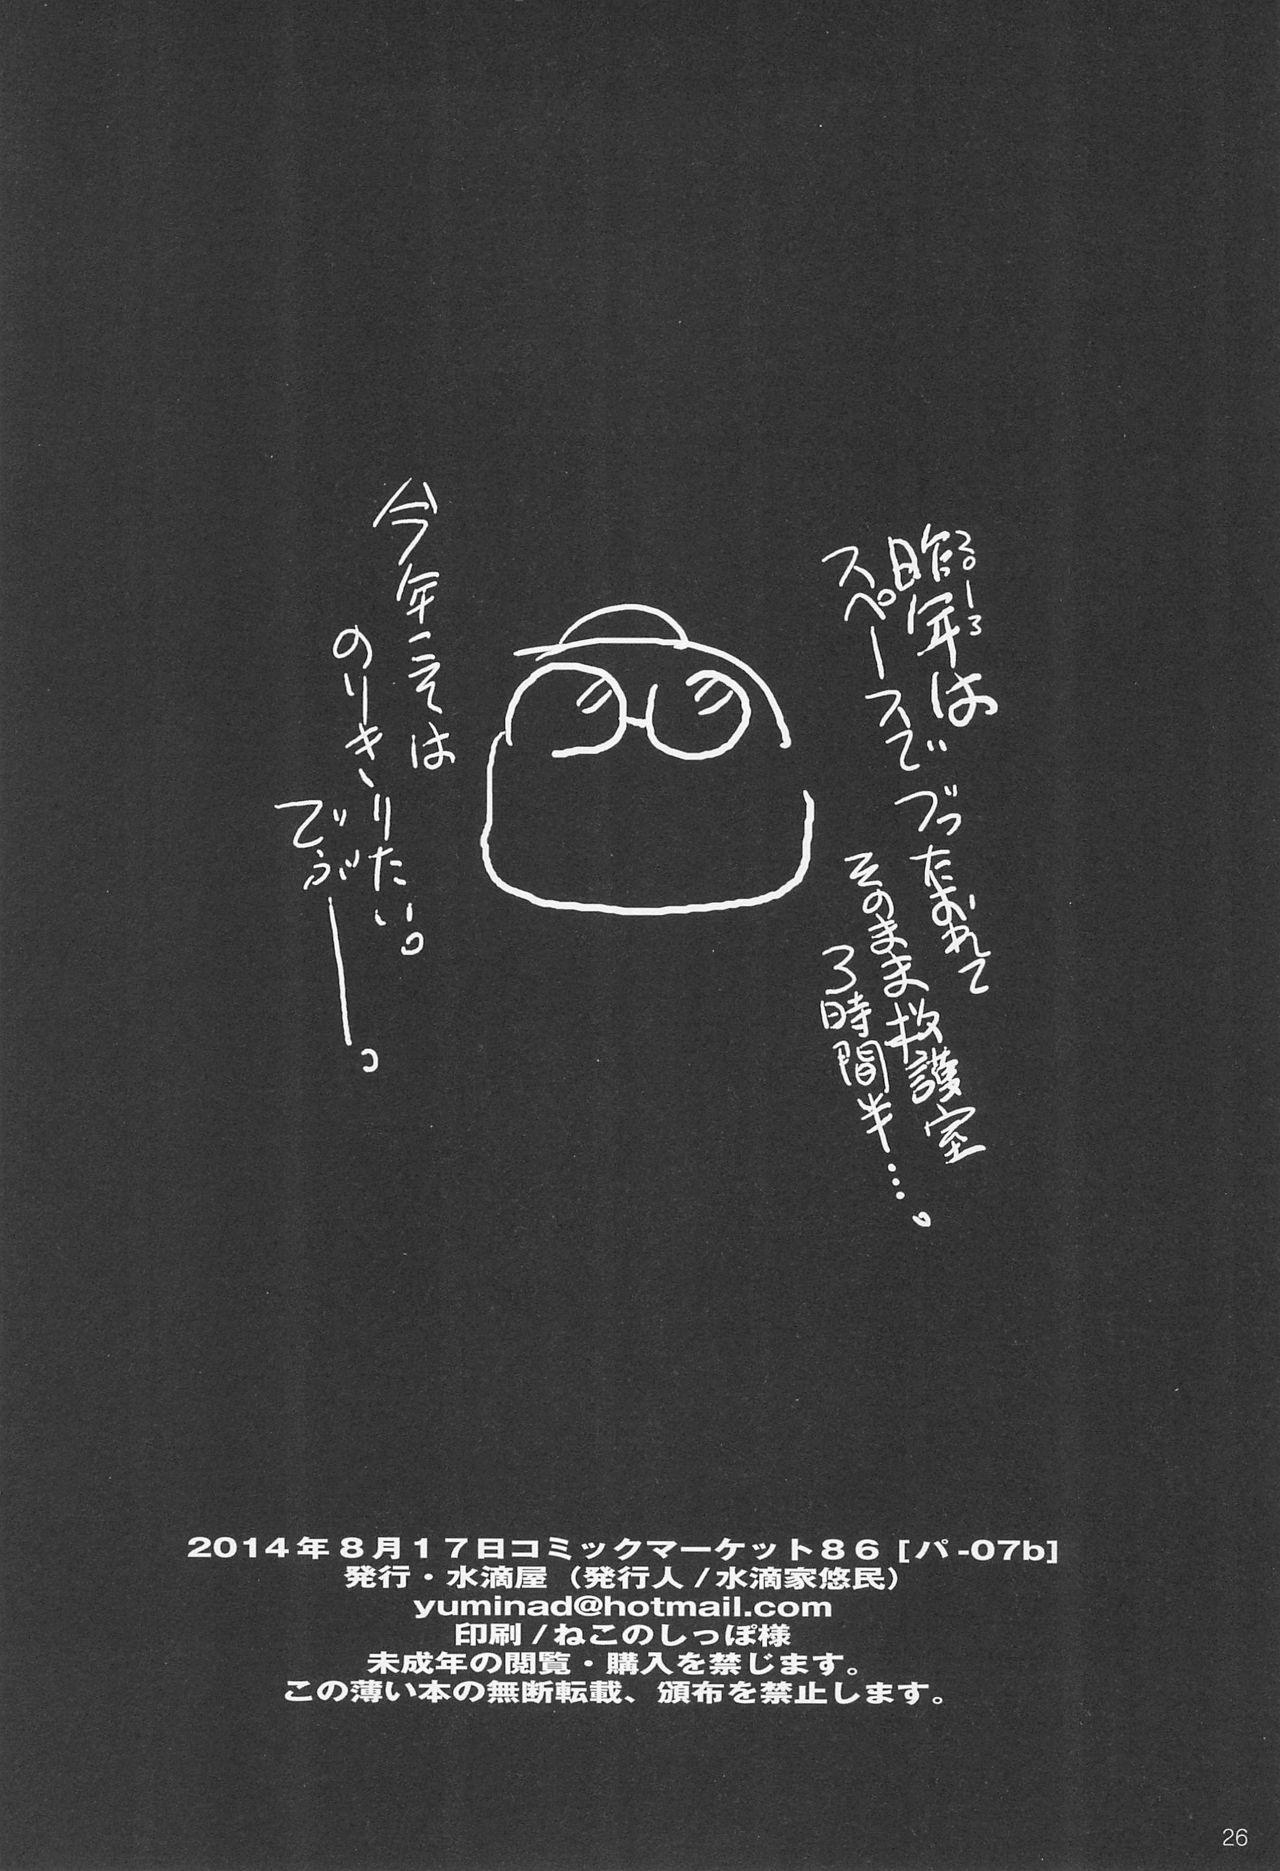 昨年は
スペースで
ぶったおれて
そのまま救護室
3時間半…。
今年こそは
のりきりたい。
でぶー。
2014年8月17日コミックマーケット86 [パ-07b]
発行・水滴屋（発行人/水滴家悠民）
yuminad@hotmail.com
印刷/ねこのしっぽ様
未成年の閲覧・購入を禁じます。
この薄い本の無断転載、頒布を禁止します。
26